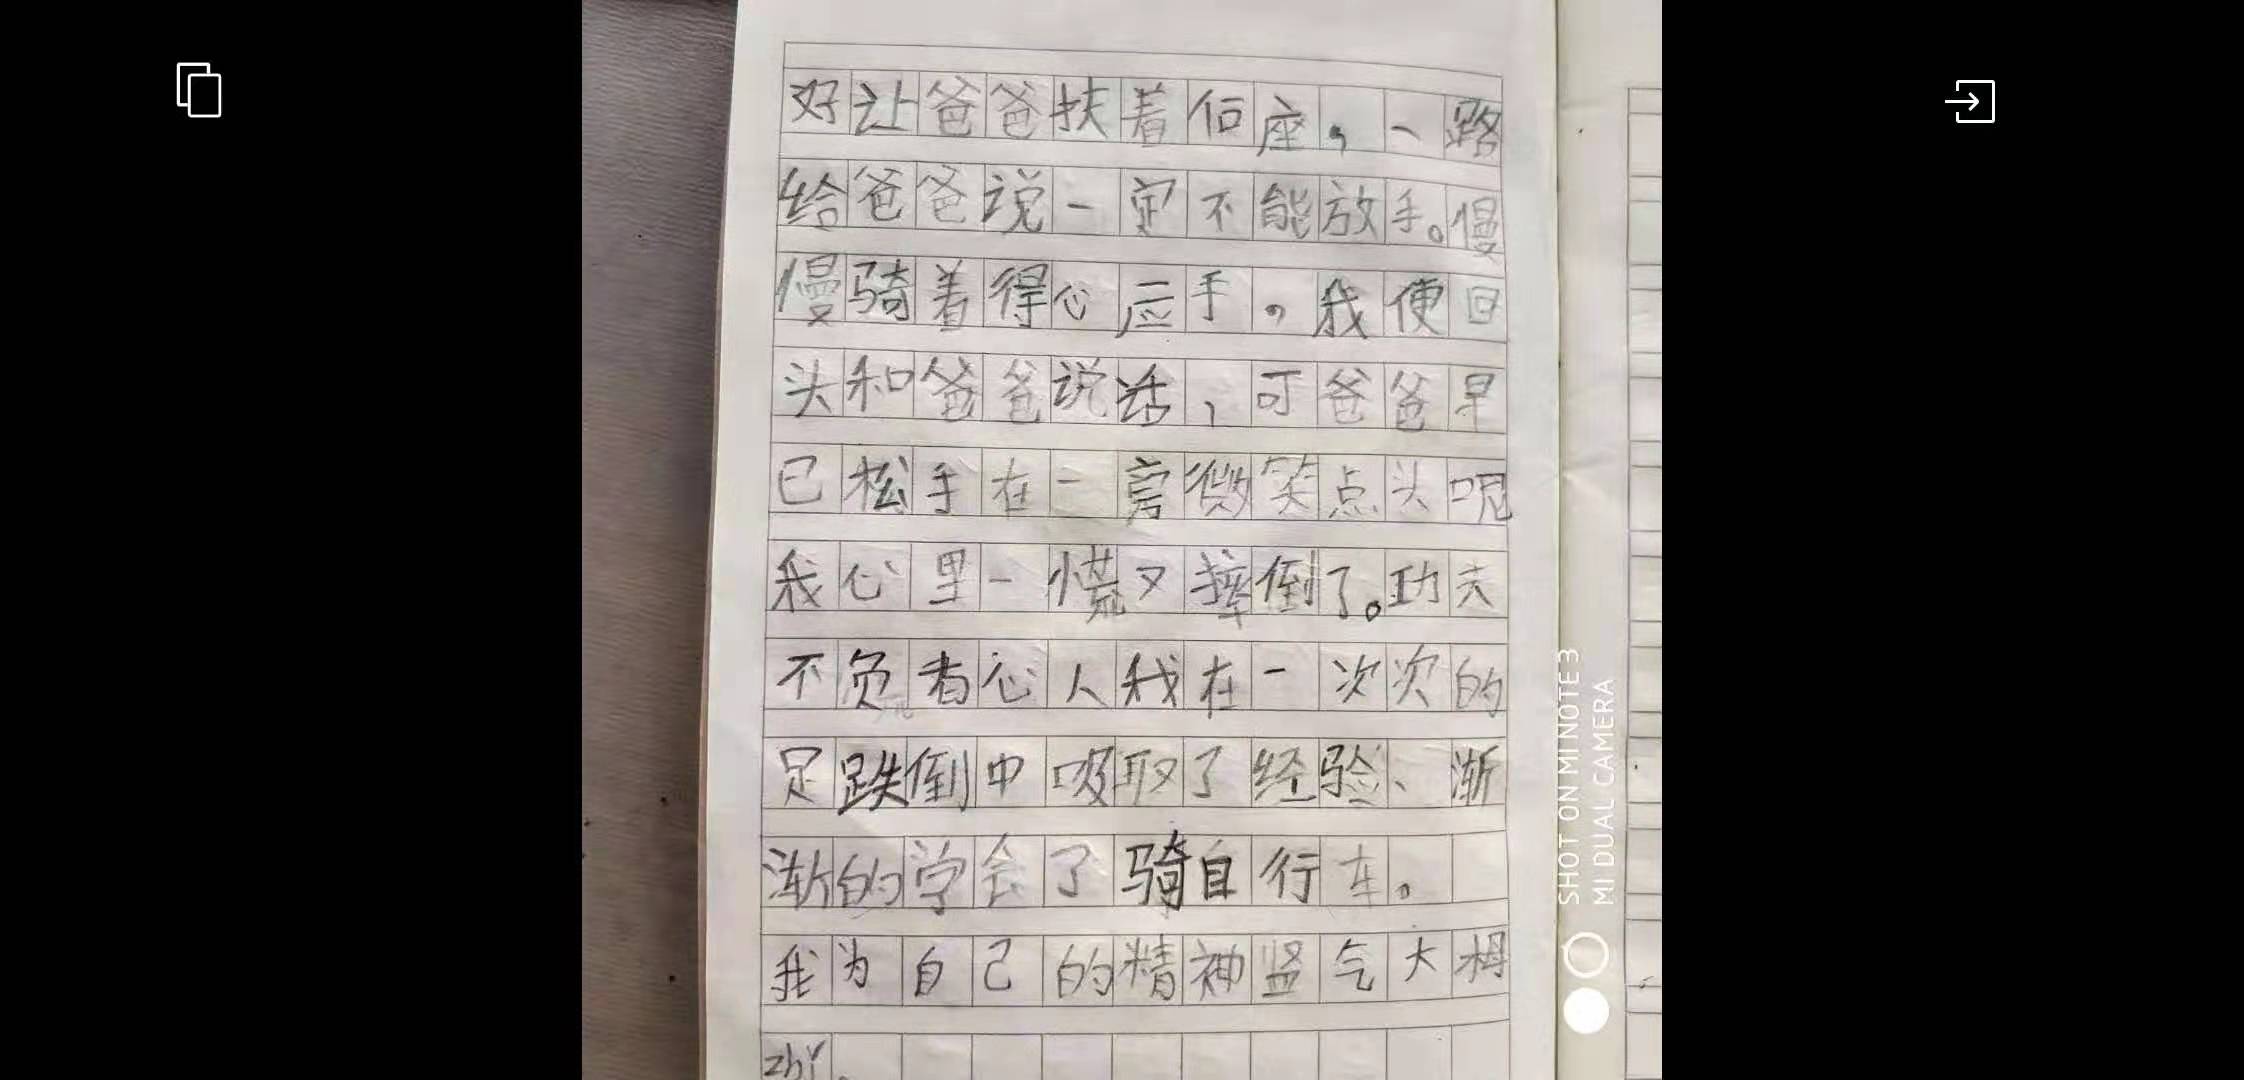 好让爸爸扶着后座，一路
给爸爸说一定不能放手。慢
慢骑着得心应手，我便回
头和爸爸说话，可爸爸早
已松手在一旁微笑点头呢
我心里一慌又摔倒了。功夫
不负有心人我在一次次的
足跌倒中吸取了经验、渐
渐的学会了骑自行车。
我为自己的精神竖起大拇
zhǐ。
SHOT ON MI NOTE 3
MI DUAL CAMERA